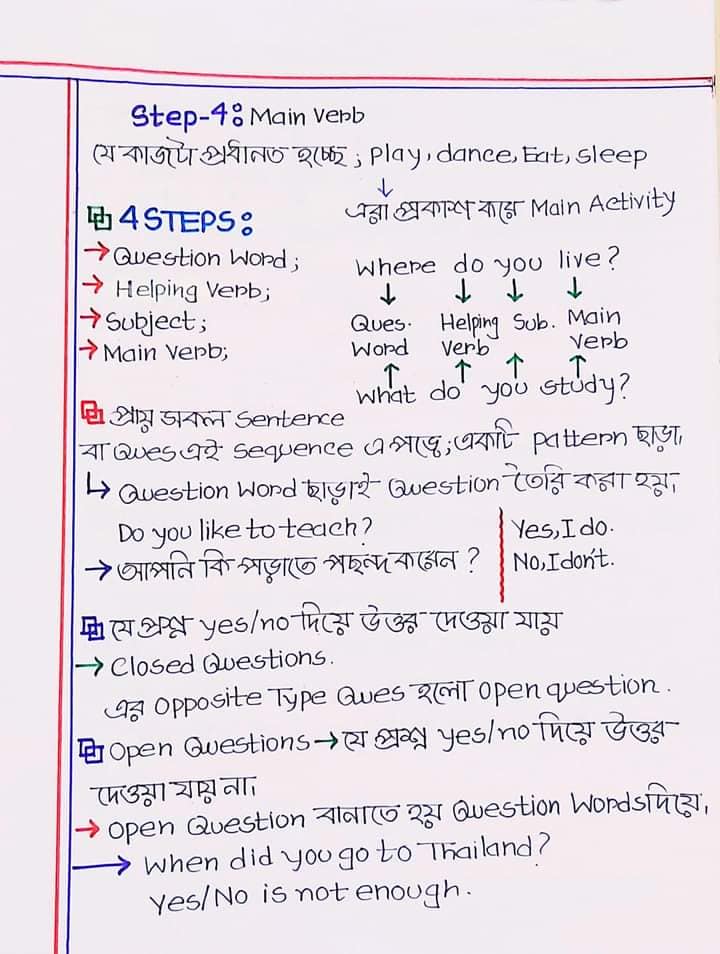 Step-4: Main Verb
যে কাজটা প্রধানত হচ্ছে ; Play, dance, Eat, sleep
↓
এরা প্রকাশ করে Main Activity
4 STEPS:
→ Question Word;
→ Helping Verb;
→ Subject;
→ Main Verb;
Where do you live?
↓ ↓ ↓ ↓
Ques. Word Helping Verb Sub. Main Verb
↑ ↑ ↑ ↑
What do you study?
প্রায় সকল Sentence
বা Ques এই Sequence এ পড়ে; একটি pattern ছাড়া,
↳ Question Word ছাড়াই Question তৈরি করা হয়,
Do you like to teach?
Yes, I do.
→ আপনি কি পড়াতে পছন্দ করেন ?
No, I don't.
যে প্রশ্ন yes/no দিয়ে উত্তর দেওয়া যায়
→ Closed Questions.
এর Opposite Type Ques হলো Open question.
Open Questions → যে প্রশ্ন yes/no দিয়ে উত্তর
দেওয়া যায় না,
→ Open Question বানাতে হয় Question Words দিয়ে,
→ When did you go to Thailand?
Yes/No is not enough.